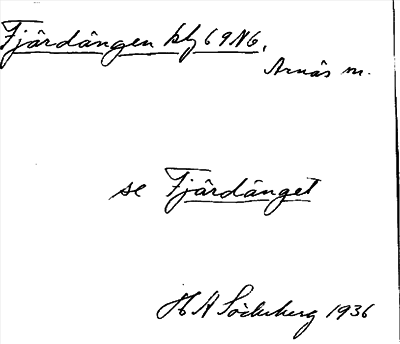 Fjärdängen blg 69N6,
Arnäs m.
se Fjärdänget
H A Söderberg 1936